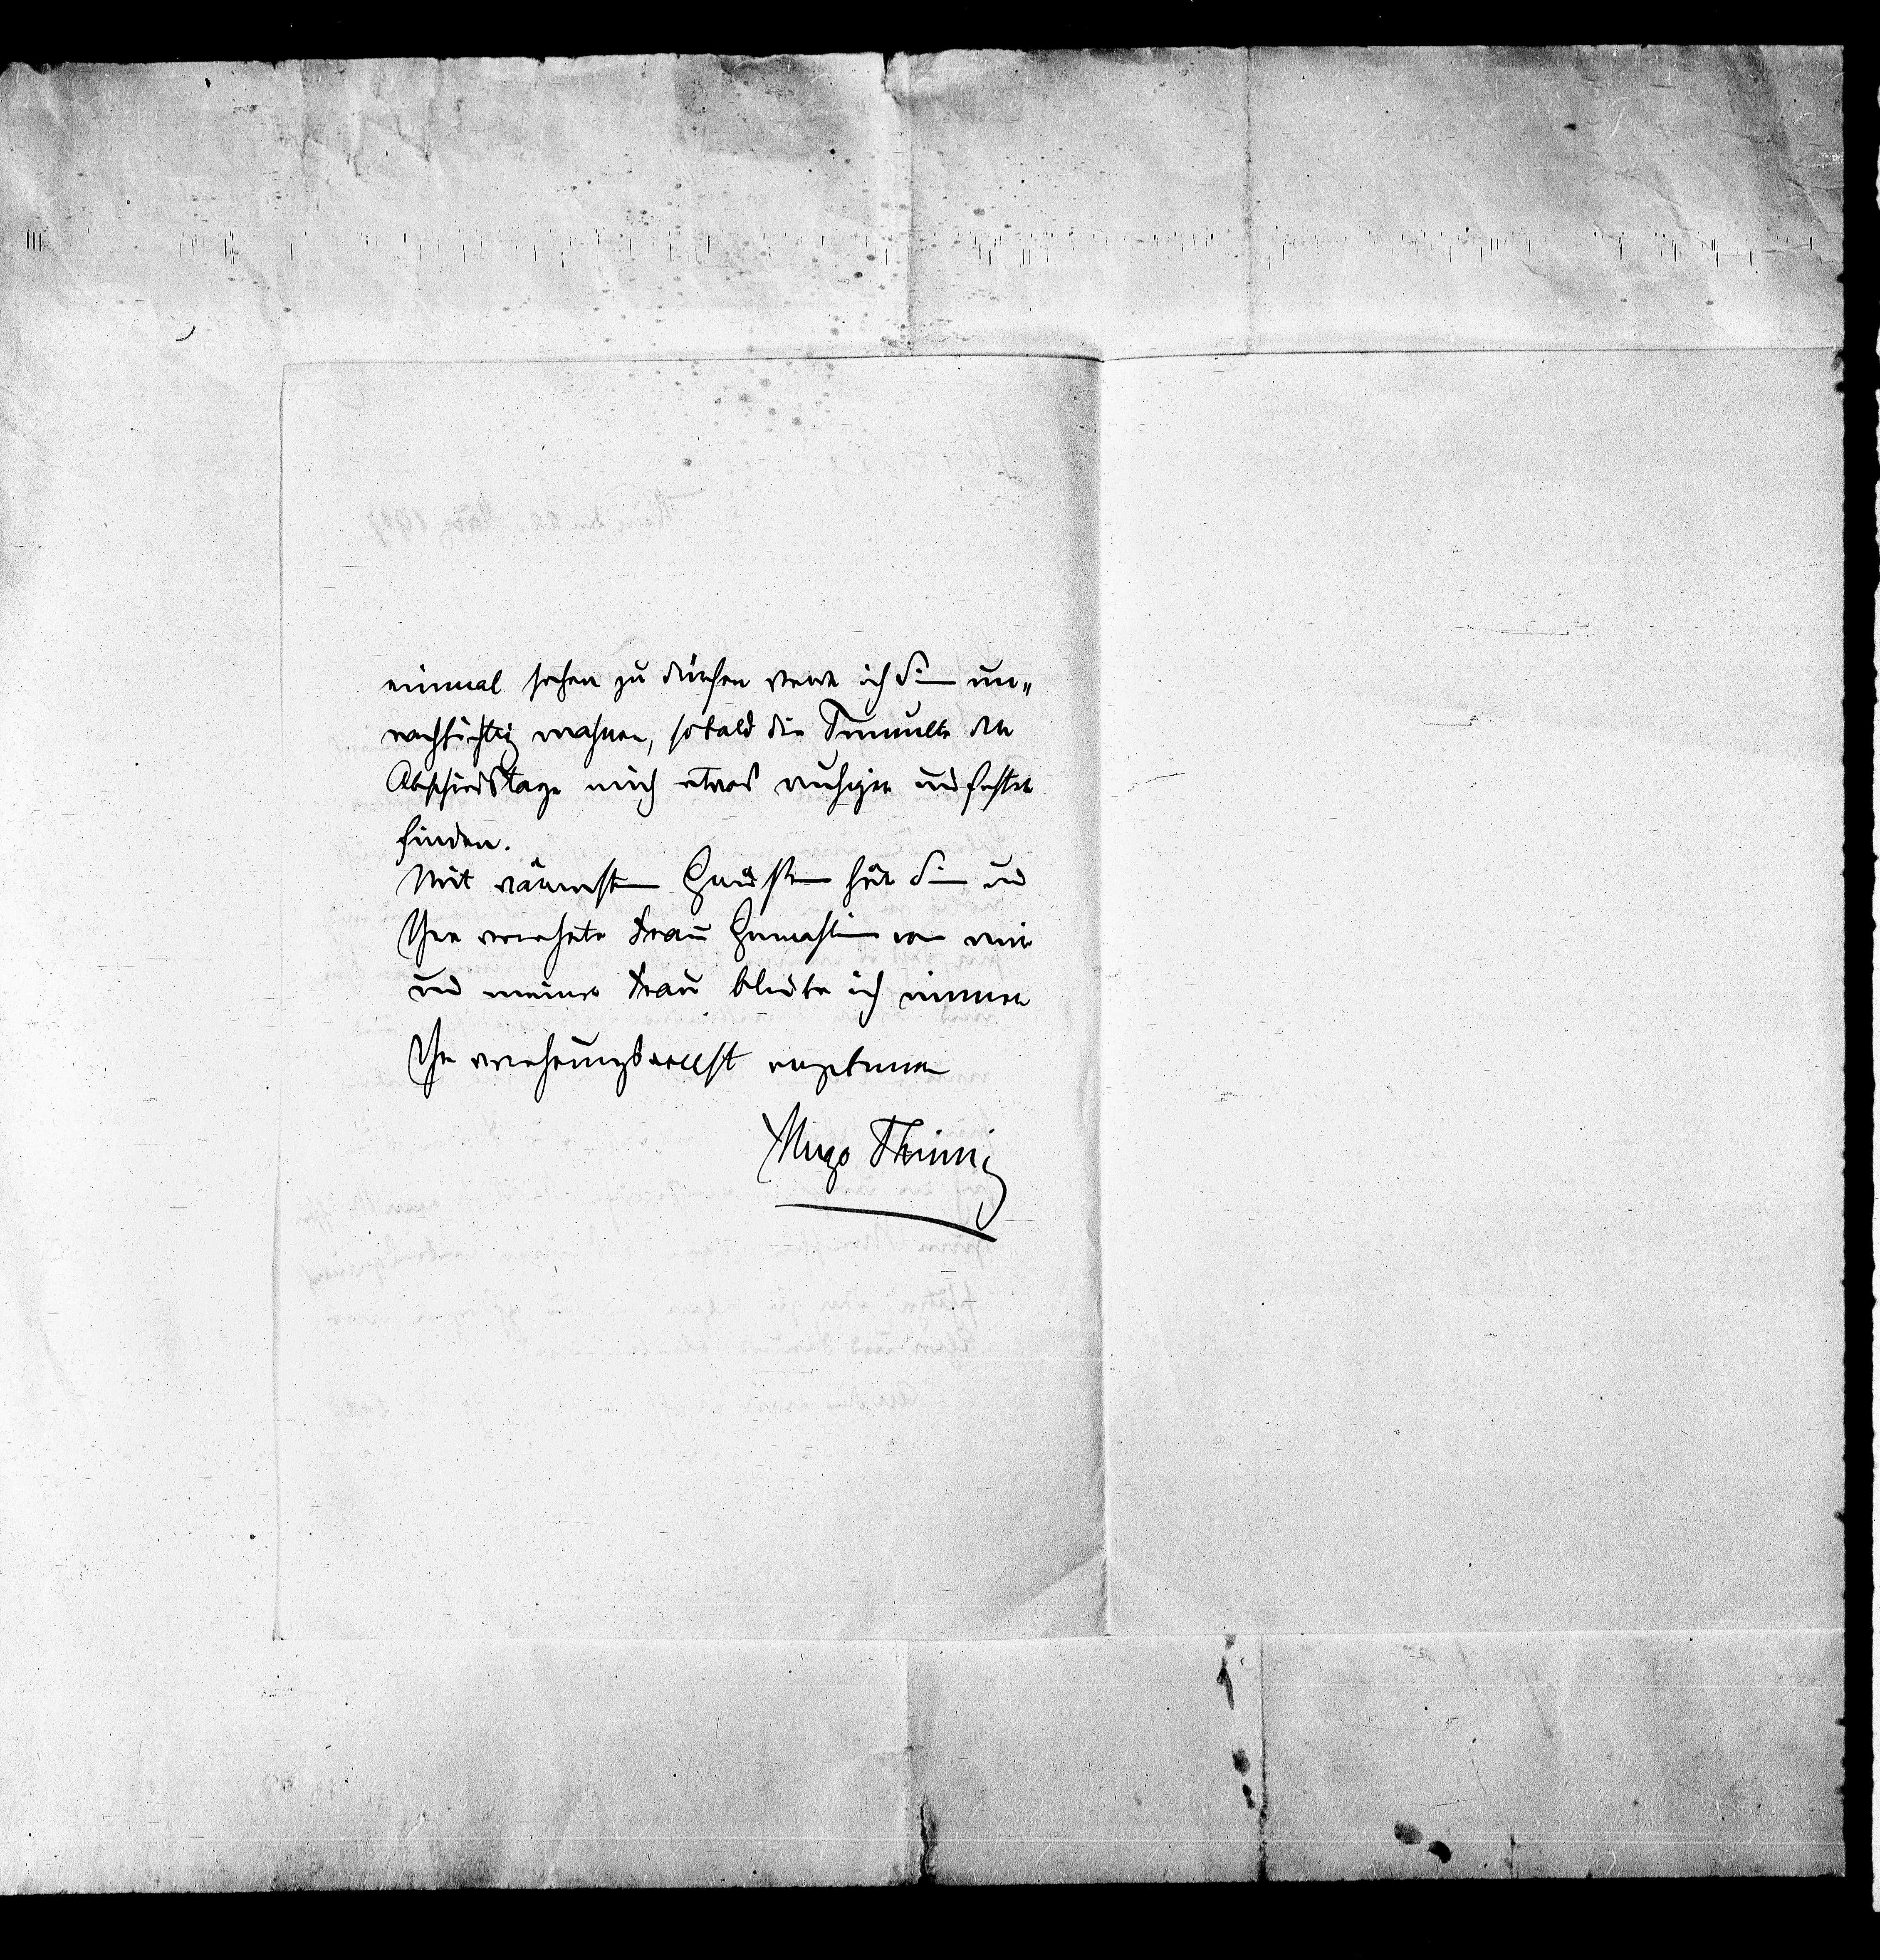 einmal sehen zu dürfen werde ich Sie un„
nachsichtig mahnen, sobald die Tumulte der
Abschiedstage mich etwas ruhiger und fester
finden.
Mit wärmsten Grüssen für Sie und
Ihre verehrte Frau Gemahlin von mir
und meiner Frau bleibe ich immer
Ihr verehrungsvollst ergebener
Hugo Thimig